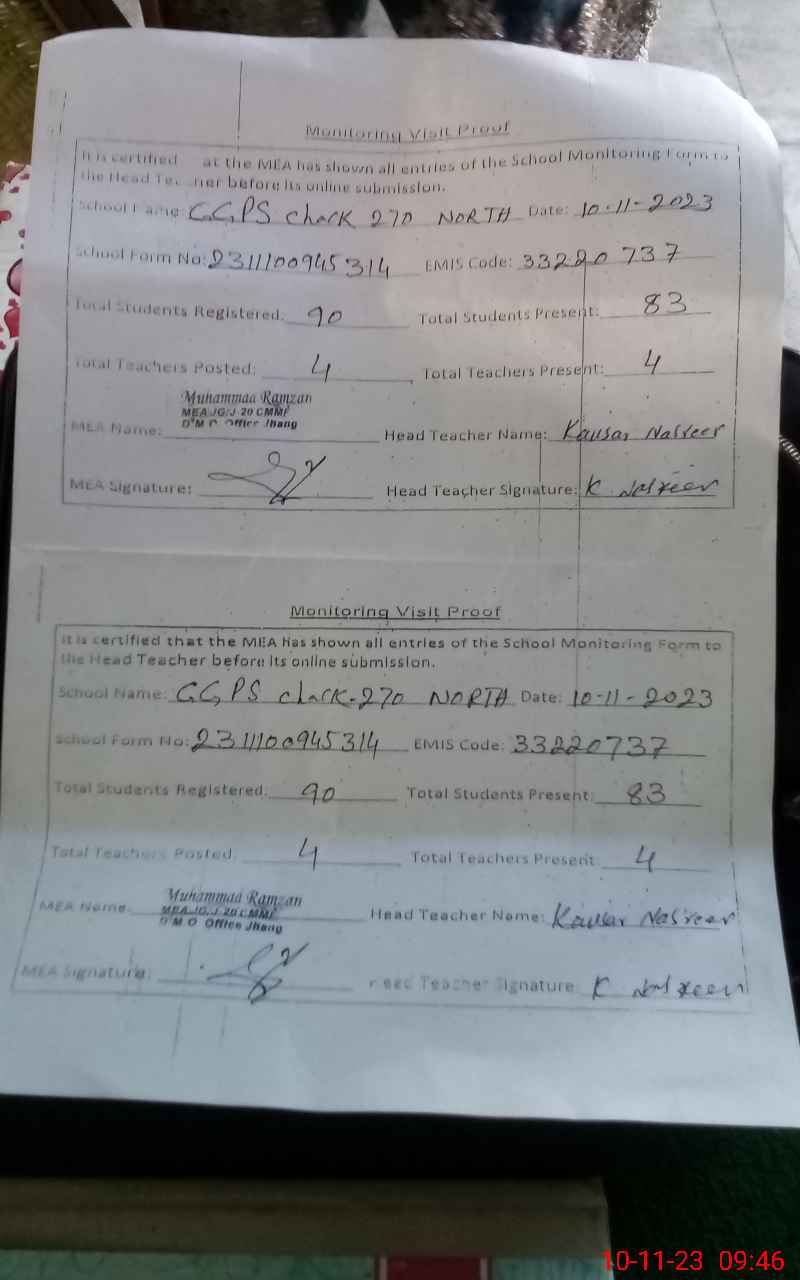 Monitoring Visit Proof
It is certified at the MEA has shown all entries of the School Monitoring Form to
the Head Teacher before its online submission.
School Name: GGPS chack 270 NORTH Date: 10-11-2023
School Form No: 2311100945314 EMIS Code: 33220737
Total Students Registered: 90 Total Students Present: 83
Total Teachers Posted: 4 Total Teachers Present: 4
Muhammad Ramzan
MEA JG/J-20 CMMF
D M O Office Jhang
MEA Name: Head Teacher Name: Kausar Nasreen
MEA Signature: Head Teacher Signature: K Nasreen
Monitoring Visit Proof
It is certified that the MEA has shown all entries of the School Monitoring Form to
the Head Teacher before its online submission.
School Name: GGPS chack-270 NORTH Date: 10-11-2023
School Form No: 2311100945314 EMIS Code: 33220737
Total Students Registered: 90 Total Students Present: 83
Total Teachers Posted: 4 Total Teachers Present: 4
Muhammad Ramzan
MEA JG/J-20 CMMF
D M O Office Jhang
MEA Name: Head Teacher Name: Kausar Nasreen
MEA Signature: Head Teacher Signature: K Nasreen
10-11-23 09:46